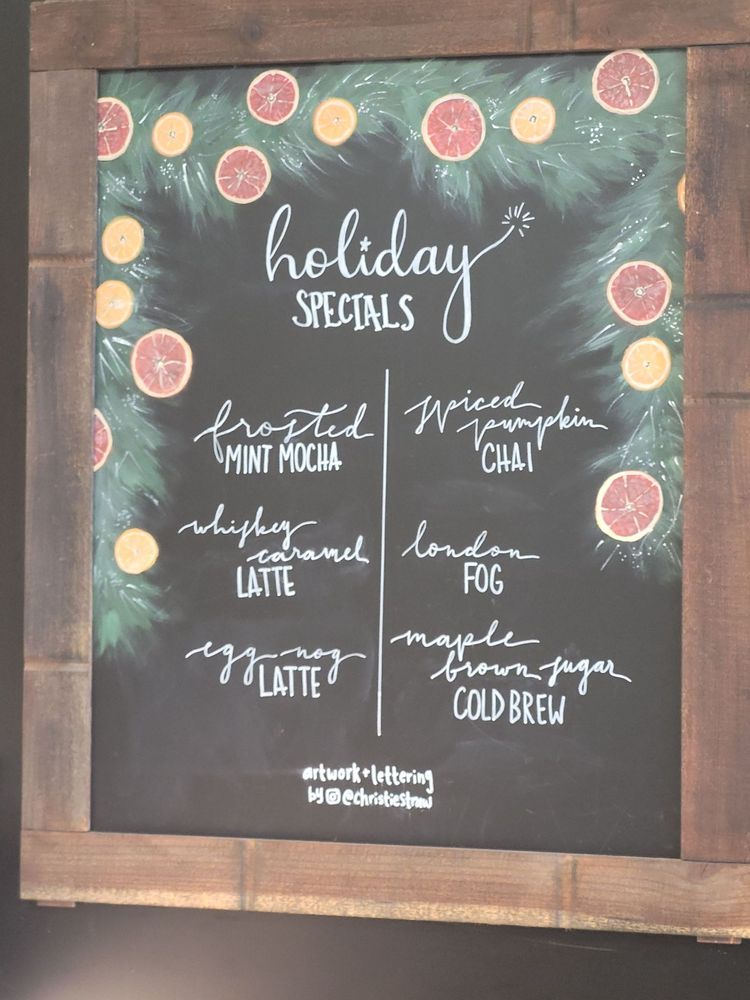 holiday
SPECIALS
frosted
MINT MOCHA
whiskey
caramel
LATTE
egg-nog
LATTE
spiced
pumpkin
CHAI
london
FOG
maple
brown sugar
COLD BREW
artwork + lettering
by @christiestraw